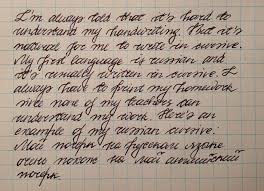 I'm always told that it's hard to
understand my handwriting. But it's
natural for me to write in cursive.
My first language is russian and
it's usually written in cursive. I
always have to print my homework
since none of my teachers can
understand my work. Here's an
example of my russian cursive:
Мой почерк на русском языке
очень похож на мой английский
почерк.